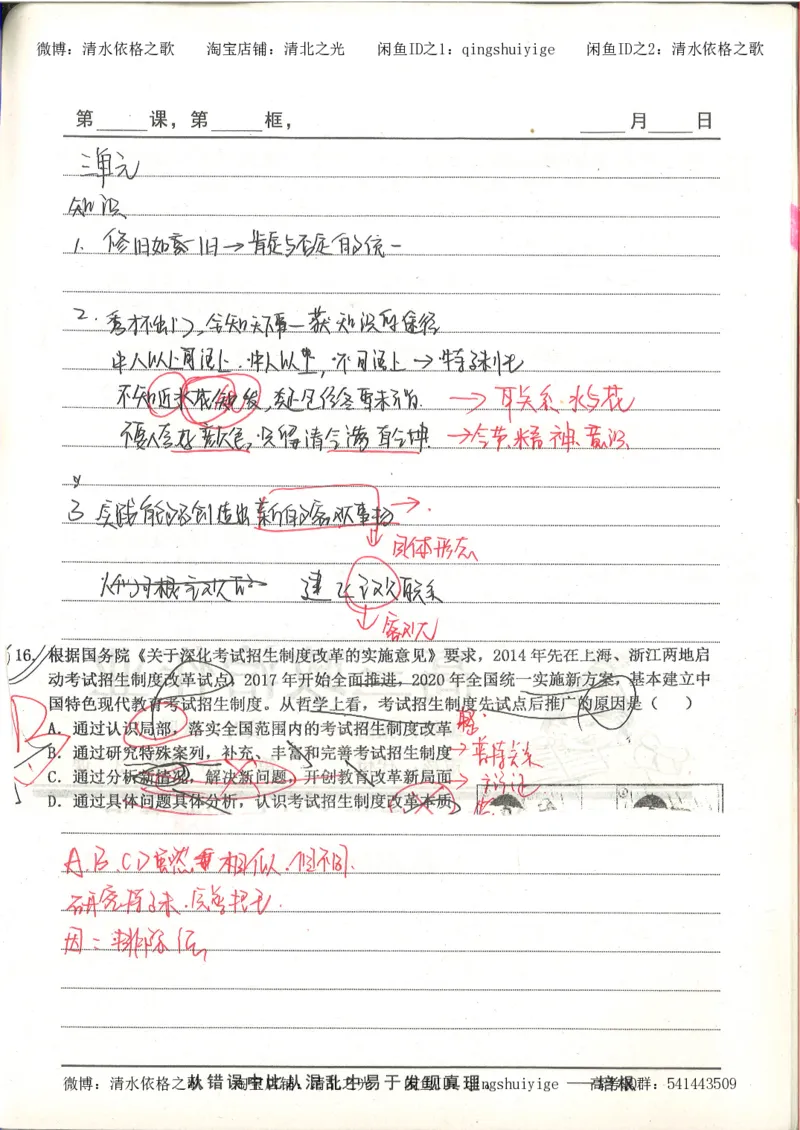 微博：清水依格之歌 淘宝店铺：清北之光 闲鱼ID之1：qingshuiyige 闲鱼ID之2：清水依格之歌
第 课，第 框， 月 日
三单元
知识
1. 修旧如旧→肯定与否定的统一
2. 秀才不出门，全知天下事—获知识的途径
中人以上可语上，中人以下，不可语上→特殊性
不知近水花先发，疑是经冬雪未消 → 耳关系 水与花
不要人夸好颜色，只留清气满乾坤 →今节 精神 意识
3 实践能够创造出新的客观事物→
具体形态
建立 联系
客观
16. 根据国务院《关于深化考试招生制度改革的实施意见》要求，2014年先在上海、浙江两地启
动考试招生制度改革试点，2017年开始全面推进，2020年全国统一实施新方案，基本建立中
国特色现代教育考试招生制度。从哲学上看，考试招生制度先试点后推广的原因是（ ）
A. 通过认识局部，落实全国范围内的考试招生制度改革
B. 通过研究特殊案列，补充、丰富和完善考试招生制度→普特关系
C. 通过分析新情况，解决新问题，开创教育改革新局面→辩证
D. 通过具体问题具体分析，认识考试招生制度改革本质
B
A.B.CD 相似.但不同.
研究特殊.完善
因：排除法
从错误中比从混乱中易于发现真理。——培根
微博：清水依格之歌 淘宝店铺：清北之光 qingshuiyige 群：541443509